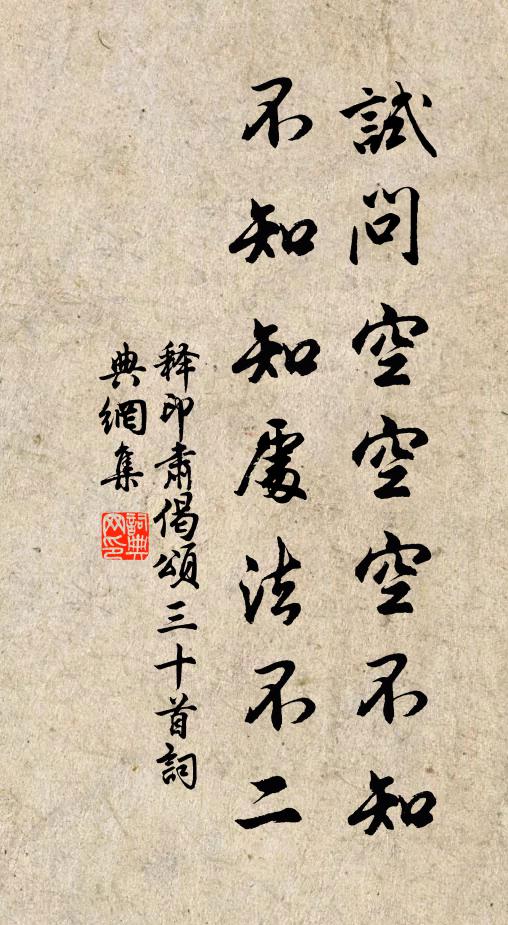 試問空空空不知
不知知處法不二
释印肅偈頌三十首詞
典網集
詞典
网印